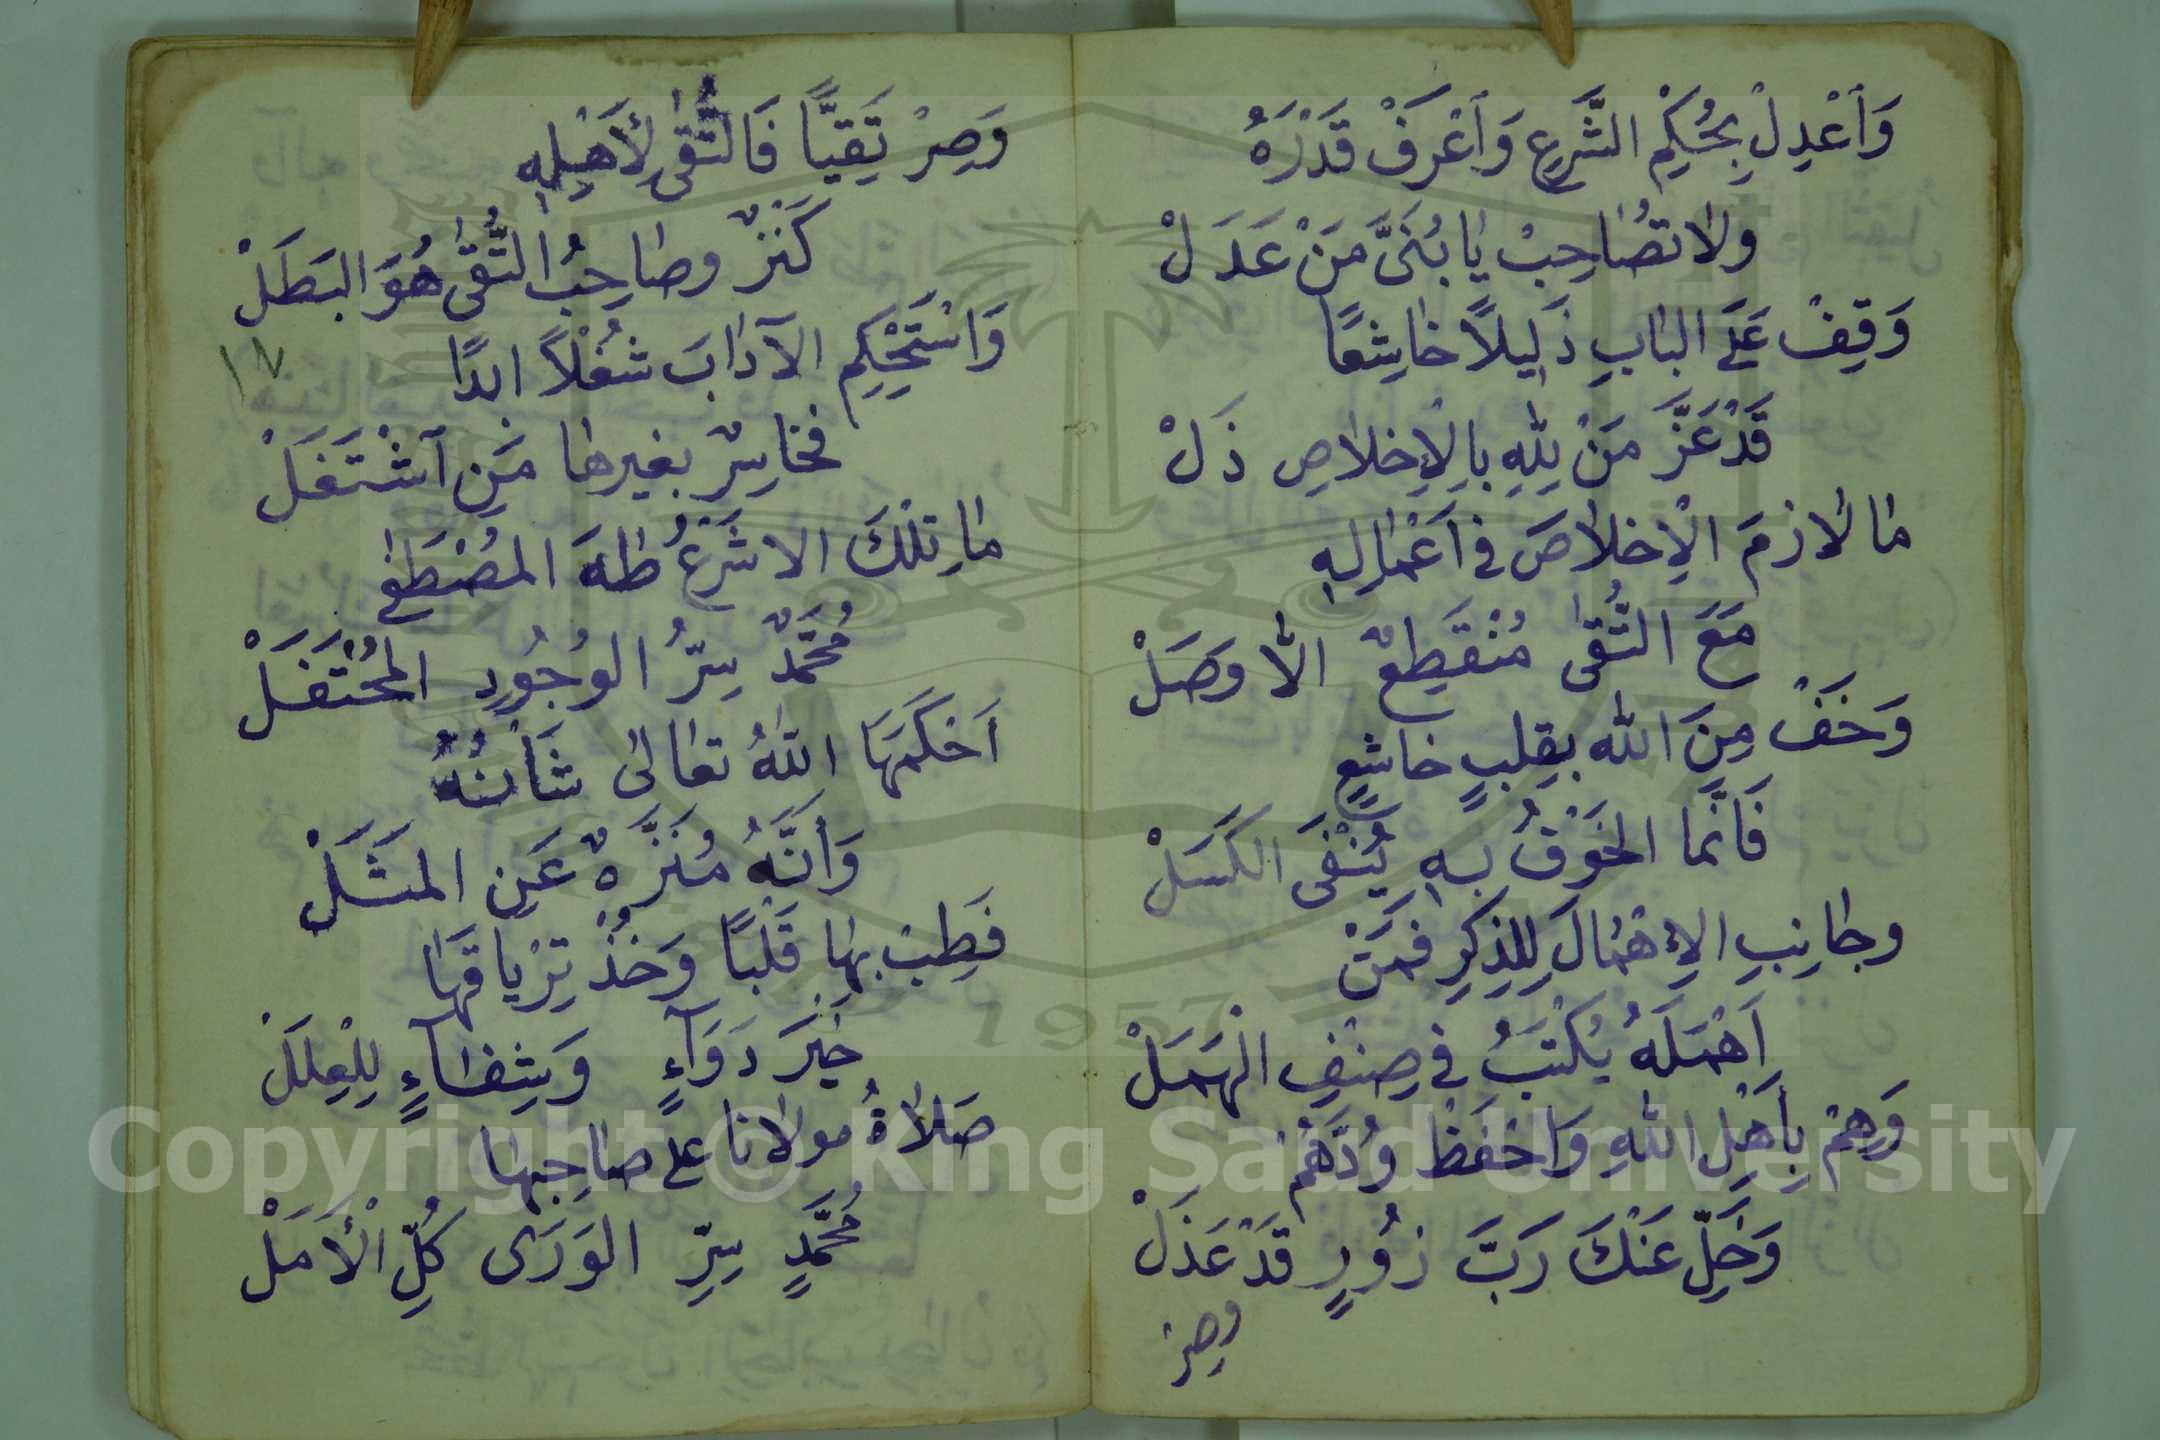 وَاَعْدِلْ بِحُكِمْ الشَّرعِ وَاَعْرِفْ قَدْرَهُ
ولا تصُاحِبْ يا بُنَىَّ مَنْ عَدَلْ
وَقِفْ عَلَى البابِ ذَلِيلاً خاشِعًا
قَدْ عَزَّ مَنْ لِلّٰهِ بِالاِخلاصِ ذَلْ
ما لازمَ الْاِخلاصَ فى اَعْمالِهِ
مَعَ التُّقىٰ مُنْقَطِعٌ الّا وَصَلْ
وَخَفْ مِنَ اللّٰه بقلبٍ خاشعٍ
فَاَنَّما الخَوْفُ بهِ يُنْفَى الكَسَلْ
وجانِبِ الاِهْمالَ لِلذِكرِ فمَنْ
اَهْمَلَهُ يُكْتَبُ فى صِنْفِ الْهَمَلْ
وَهِمْ بِأَهْلِ اللّٰهِ وَاحْفَظْ وُدَّهُمْ
وَخَلِّ عَنْكَ رَبَّ زُورٍ قَدْ عَذَلْ
وصر
وَصِرْ تَقِيًّا فَالتُّقىٰ لِأَهْلِهِ
كَنْزٌ وصاحِبُ التُّقىٰ هُوَ البَطَلْ
وَاسْتَحْكِمِ الآدابَ شُغْلاً ابدًا
١٧
فخاسِرٌ بغيرها مَنِ اَشْتَغَلْ
ما تِلْكَ الا شَرْعُ طٰهَ المصُطَفٰى
مُحَمَّدٌ سِرُّ الوُجُودِ المحُتْفَلْ
اَحْكَمَهَا اللّٰهُ تعالىٰ شَأْنُهُ
وَاَنَّهُ مُنَزَّهٌ عَنِ المَثَلْ
فَطِبْ بِها قَلْبًا وَخُذْ تِرْياقَهَا
خَيْرَ دَوَآءٍ وَشِفاءٍ لِلْعِلَلْ
صَلاةُ مولانا على صاحِبِها
مُحَمَّدٍ سِرِّ الوَرَى كُلِّ الْأَمَلْ
Copyright © King Saud University
1957